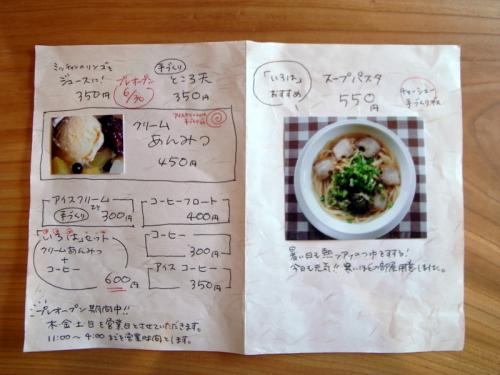 ミッチャンのリンゴを
ジュースに!
350円
プレオープン
6/30
手づくり
ところ天
350円
クリーム
あんみつ
450円
アイスクリームは
手づくり
アイスクリーム
手づくり
300円
コーヒーフロート
400円
いろはセット
クリームあんみつ
+
コーヒー
600円
コーヒー
300円
アイスコーヒー
350円
プレオープン期間中!!
木金土日を営業日とさせていただきます。
11:00〜4:00までを営業時間とします。
「いろは」
おすすめ
スープパスタ
550円
チャーシュー
手づくり
暑い日も熱いアツアツのつゆをする!
今日も元気!!